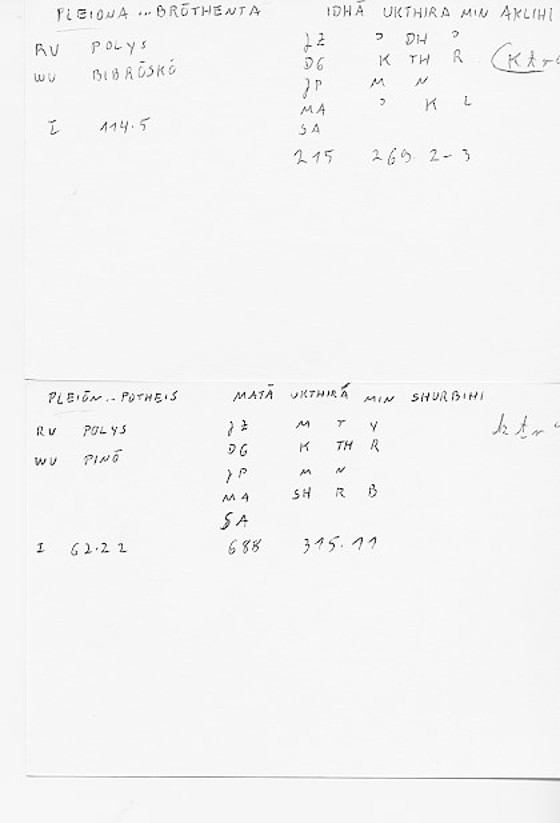 PLEIONA ... BRŌTHENTA IDHĀ UKTHIRA MIN AKLIHI
RU POLYS ƷZ ʾ DH ʾ
WU BIBRŌSKŌ DG K TH R
ƷP M N
MA ʾ K L
I 114.5 SA
215 269. 2-3
PLEIŌN .. POTHEIS MATĀ UKTHIRĀ MIN SHURBIHI
RU POLYS ƷZ M T Y
WU PINŌ DG K TH R
ƷP M N
MA SH R B
SA
I 62.22 688 315.11